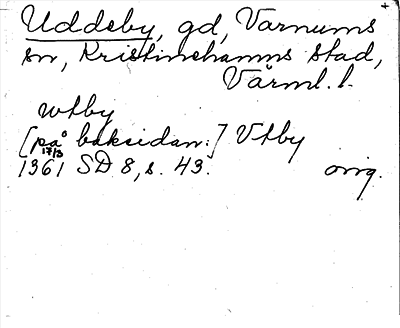 Uddeby, gd, Varnums
sn, Kristinehamns stad,
Värml. l.
wtby
[på baksidan:] Vtby
17/3
1361 SD 8, s. 43. orig.